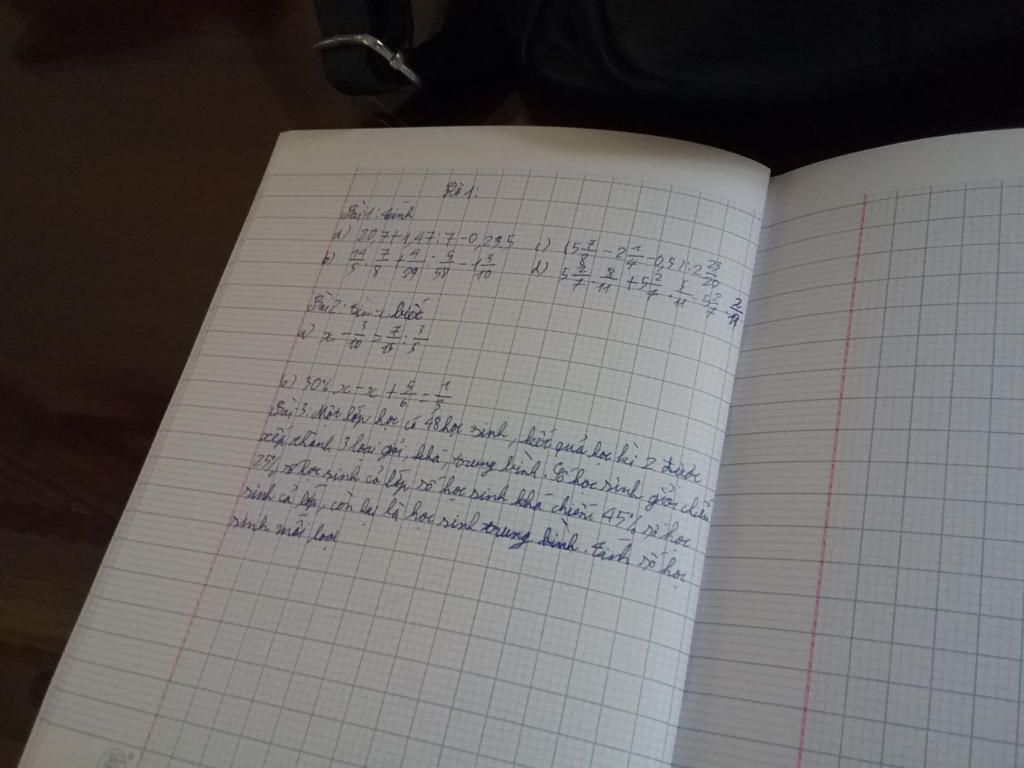 Đề 1:
Bài 1: tính
a) 20,7 + 1,47 : 7 - 0,23.5
c) (5 7/8 - 2 1/4 - 0,5) : 2 23/20
b)
d) 5 2/7 . 8/11 + 5 2/7 . 5/11 - 5 2/7 . 2/11
Bài 2: tìm x, biết
a) x - 3/10 = 7/15 : 3/5
b) 30% x - x + 5/6 = 1/3
Bài 3: Một lớp học có 48 học sinh, kết quả học kì 2 được
xếp thành 3 loại giỏi, khá, trung bình. Số học sinh giỏi chiếm
25% số học sinh cả lớp, số học sinh khá chiếm 45% số học
sinh cả lớp, còn lại là học sinh trung bình. Tính số học
sinh mỗi loại